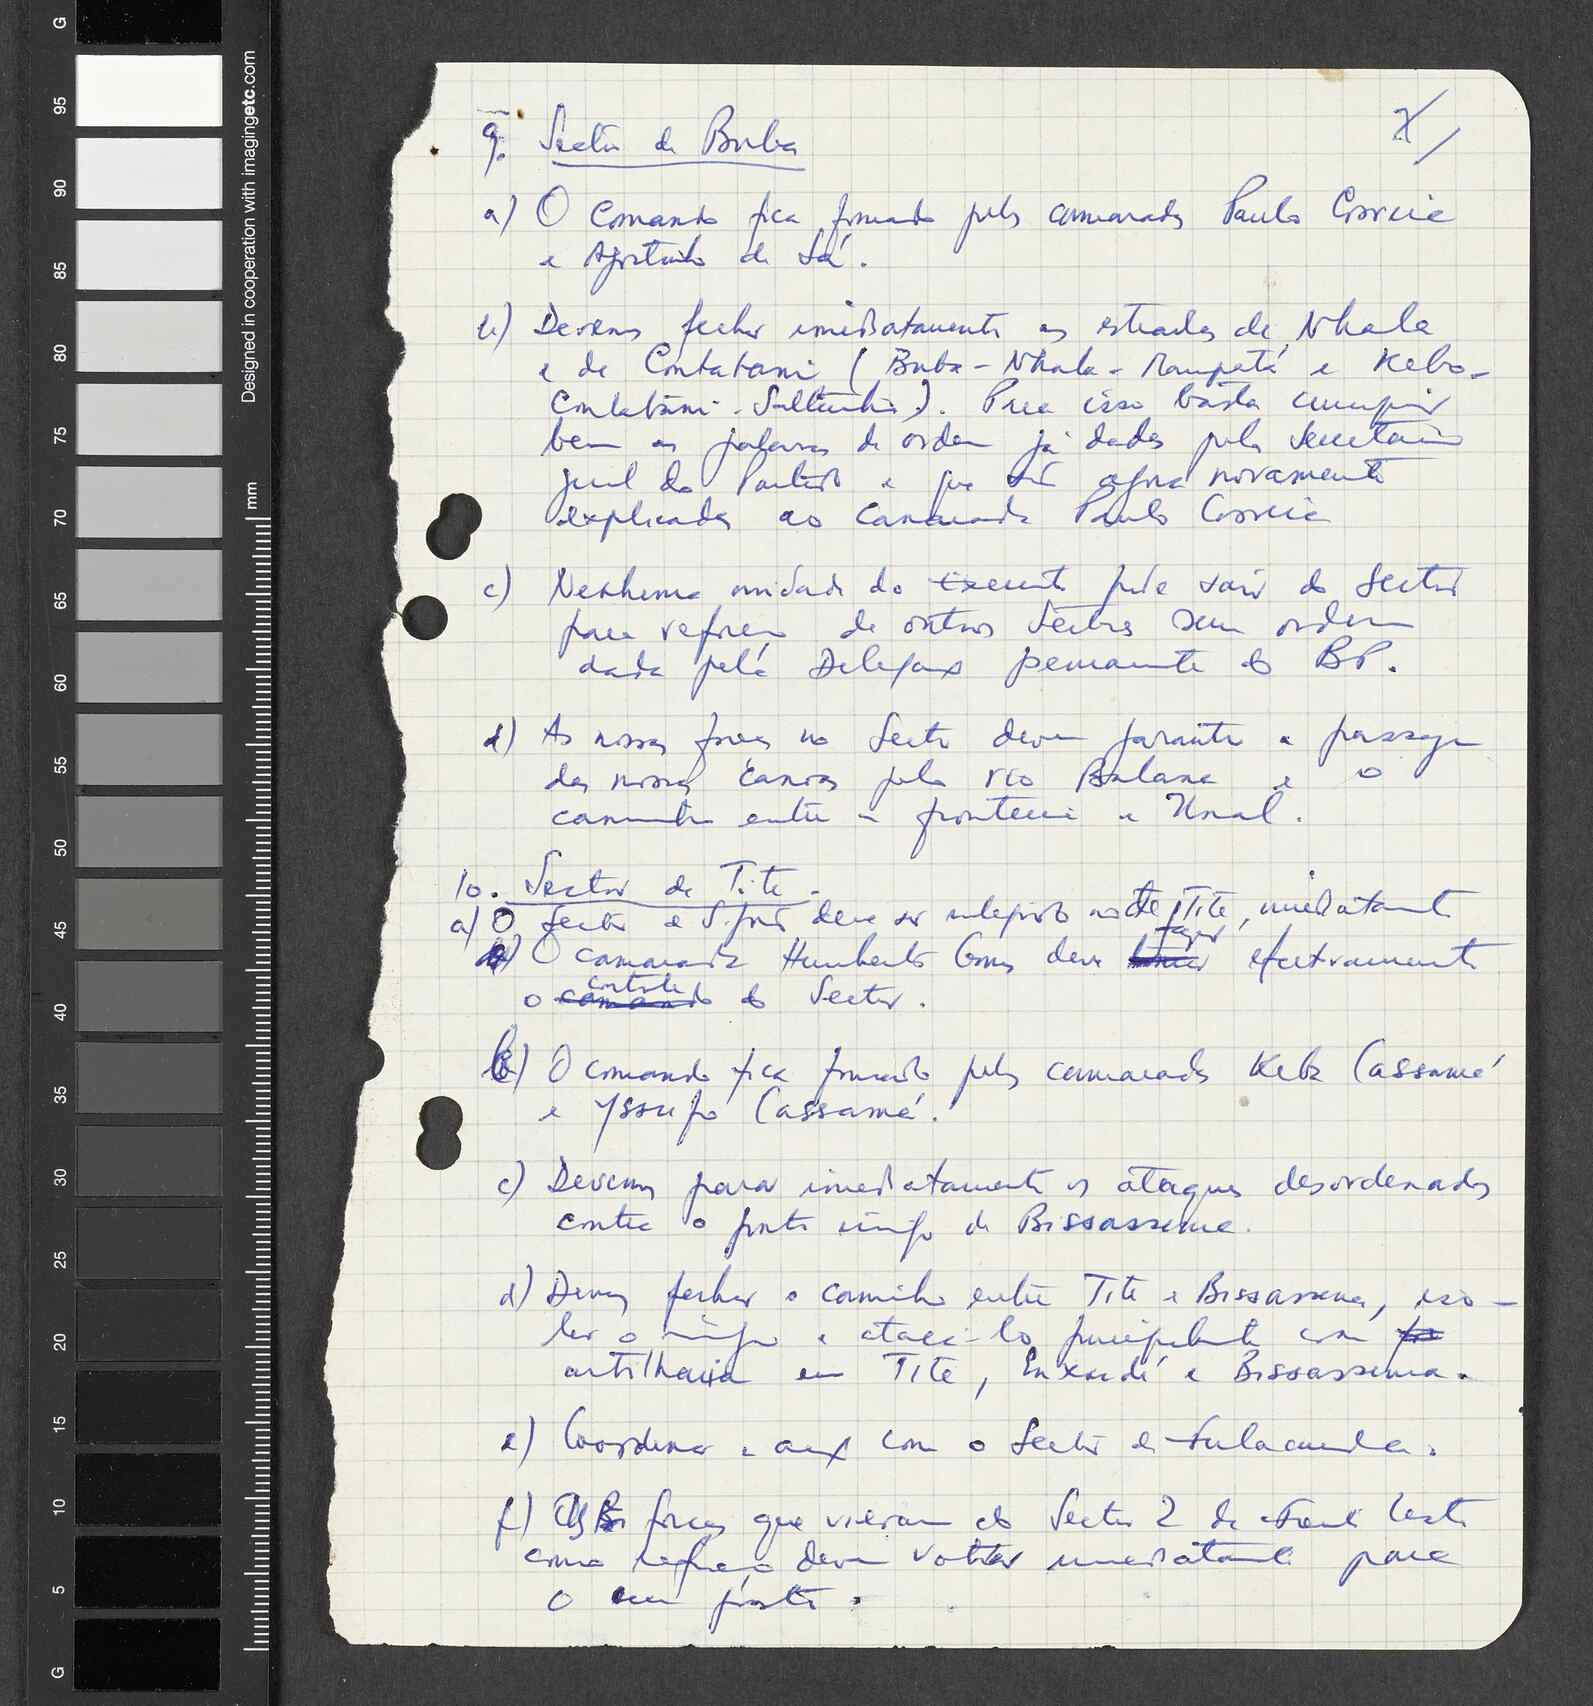 9. Sector de Buba
a) O Comando fica formado pelos camaradas Paulo Correia
e Agostinho de Sá.
b) Devemos fechar imediatamente as estradas de Nhala
e de Contabani (Buba-Nhala-Mampatá e Kebo-
Contabani-Saltinho). Para isso basta cumprir
bem as palavras de ordem já dadas pelo Secretário
geral do Partido e que são agora novamente
explicadas ao Camarada Paulo Correia
c) Nenhuma unidade do Exercito pode sair do Sector
para reforço de outros Sectores sem ordem
dada pela Delegação permanente do BP.
d) As nossas forças no Sector devem garantir a passagem
das nossas canoas pelo rio Balana e o
caminho entre a fronteira e Unal.
10. Sector de Tite.
a) O Sector de deve ser integrado no de Tite, imediatamente
O camarada Humberto Gomes deve fazer efectivamente
o controle do Sector.
b) O comando fica formado pelos camaradas Keba Cassamá
e Yssufo Cassamá.
c) Devemos parar imediatamente os ataques desordenados
contra o ponto inimigo de Bissassema.
d) Devemos fechar o caminho entre Tite e Bissassema, iso-
lar o inimigo e atacá-lo principalmente com
artilharia em Tite, Enxudé e Bissassema.
e) Coordenar a acção com o Sector de Fulacunda.
f) As forças que vieram do Sector 2 da Frente Leste
como reforço devem voltar imediatamente para
o seu posto.
G
95
90
85
80
75
70
65
60
55
50
45
40
35
30
25
20
15
10
5
G
Designed in cooperation with imagingetc.com
mm